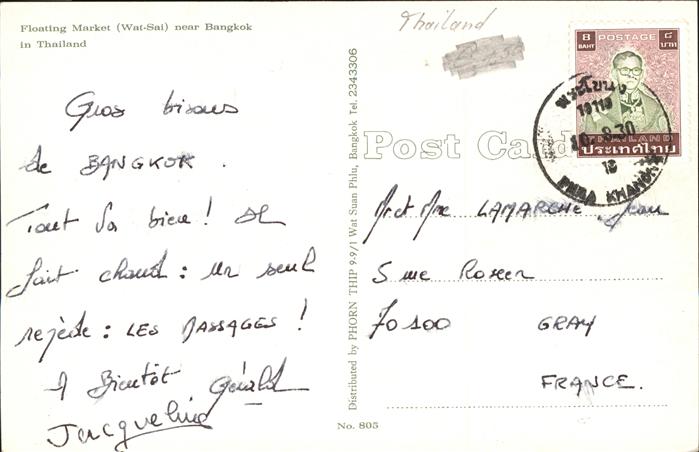 Floating Market (Wat-Sai) near Bangkok
in Thailand
Gros bisous
de BANGKOK.
Tout va bien! Il
fait chaud: un seul
remède: LES MASSAGES!
A Bientôt Gérald
Jacqueline
Distributed by PHORN THIP 9-9/1 Wat Suan Phlu, Bangkok Tel. 2343306
No. 805
Thailand
Post Card
8 POSTAGE ๘
BAHT บาท
THAILAND
ประเทศไทย
พระโขนง
10110
10
PHRA KHANONG
Mr et Mme LAMARCHE Jean
5 rue
70100 GRAY
FRANCE.